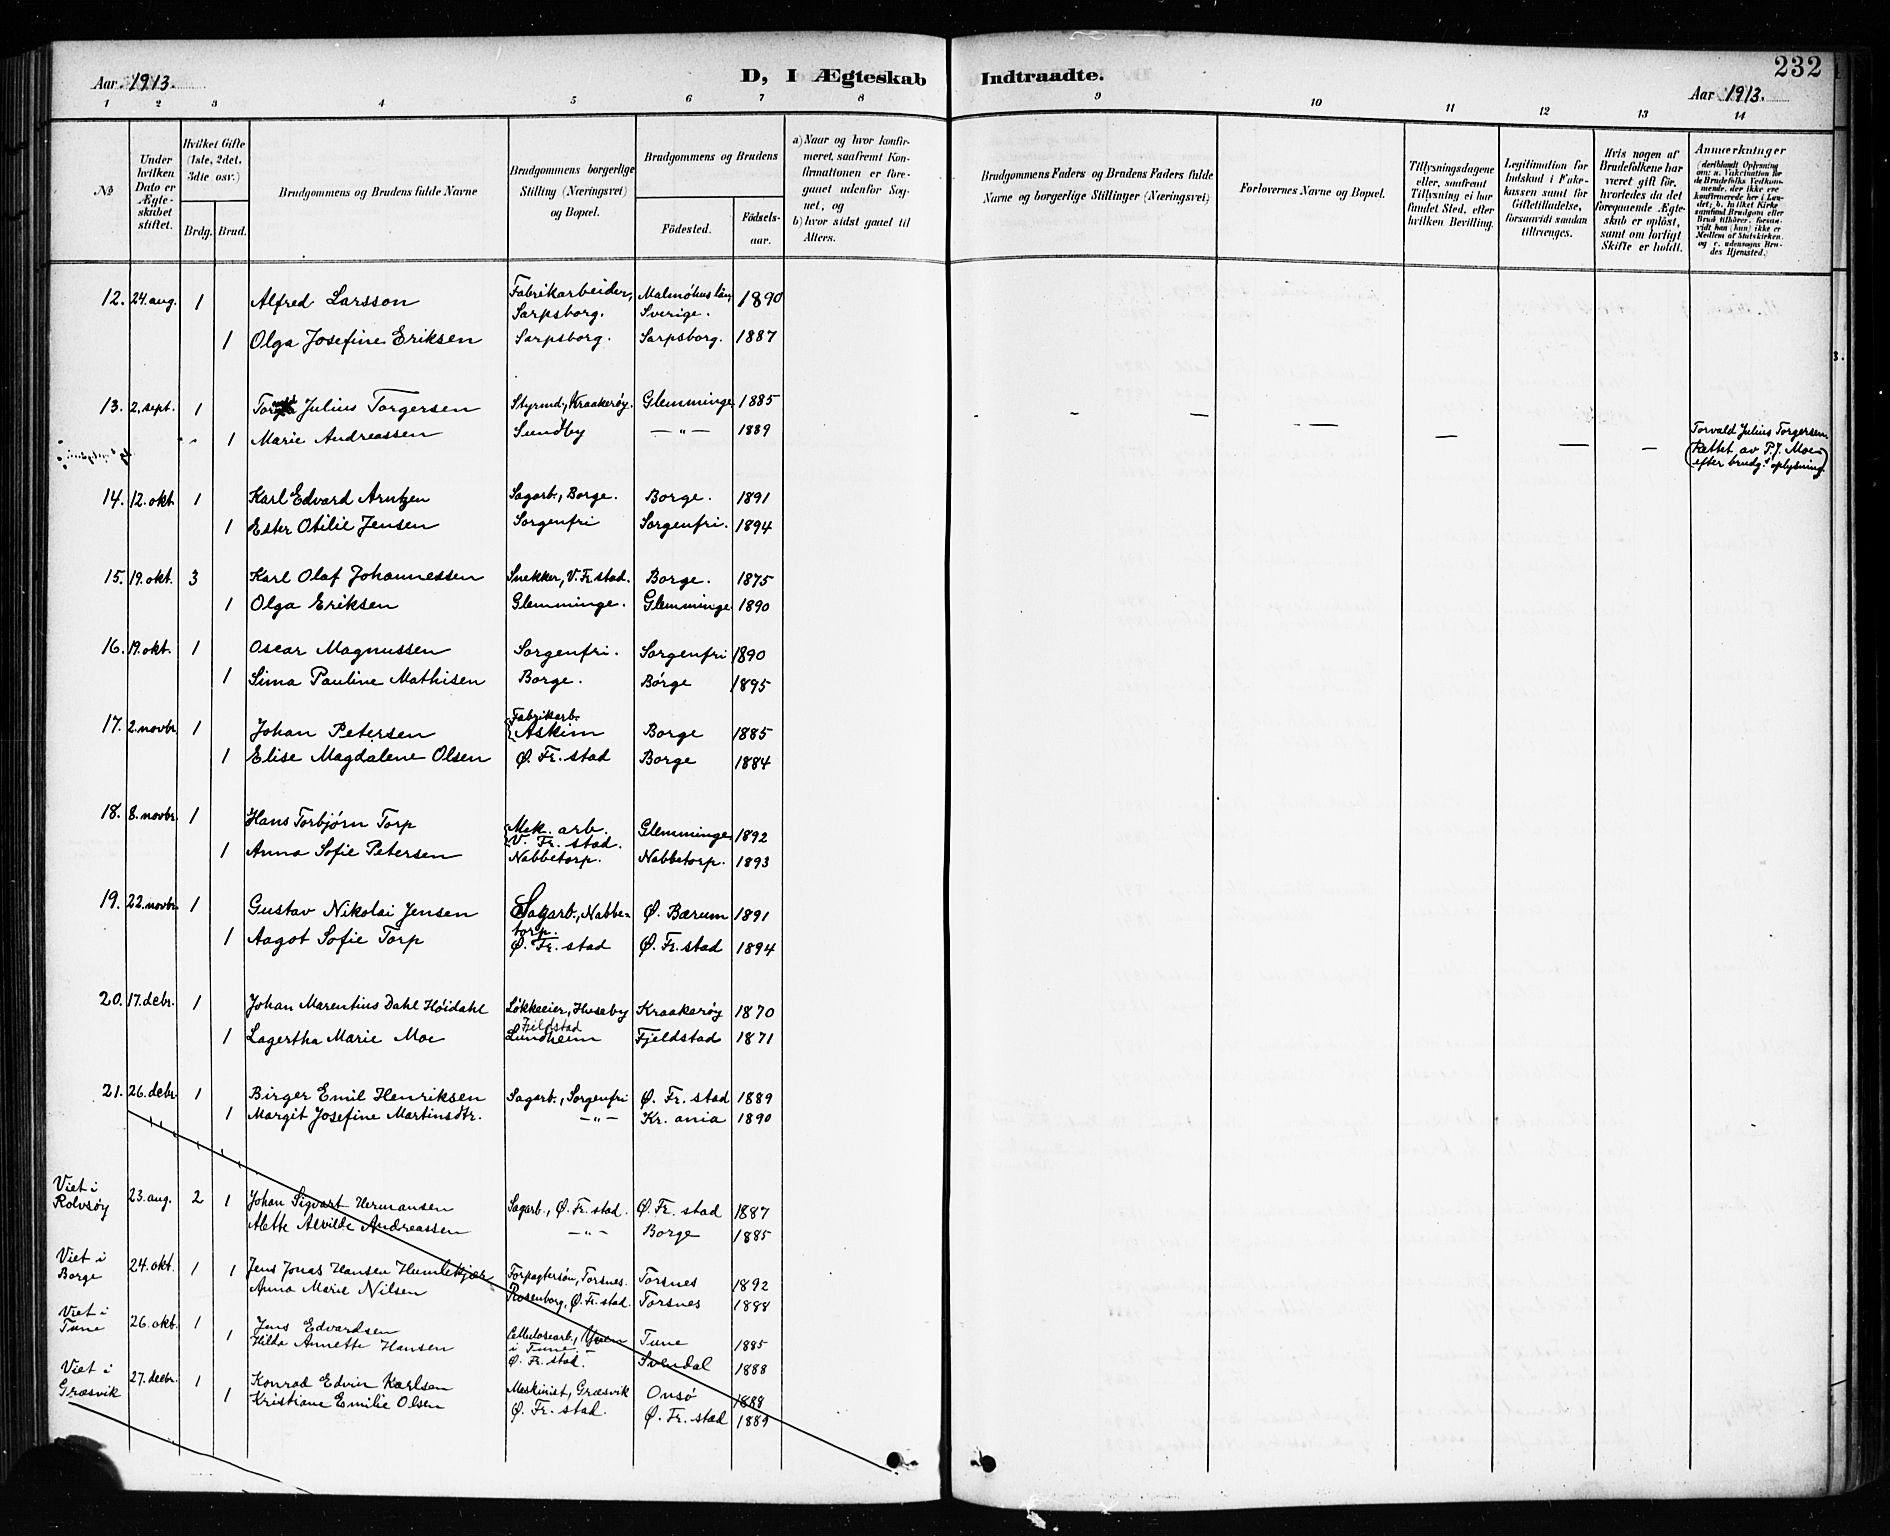 232
Aar 1913.
D, I Ægteskab Indtraadte.
Aar 1913.
1 2 3 4 5 6 7 8 9 10 11 12 13 14
No
Under hvilken Dato er Ægteskabet stiftet.
Hvilket Gifte (1ste, 2det, 3die osv.)
Brdg. Brud.
Brudgommens og Brudens fulde Navne
Brudgommens borgerlige Stilling (Næringsvei) og Bopæl.
Brudgommens og Brudens
Födested.
Födselsaar.
a) Naar og hvor konfirmeret, saafremt Konfirmationen er foregaaet udenfor Sognet, og
b) hvor sidst gaaet til Alters.
Brudgommens Faders og Brudens Faders fulde Navne og borgerlige Stillinger (Næringsvei)
Forlovernes Navne og Bopæl.
Tillysningsdagene eller, saafremt Tillysning ei har fundet Sted, efter hvilken Bevilling.
Legitimation for Indskud i Enkekassen samt for Giftetilladelse, forsaavidt saadan tiltrænges.
Hvis nogen af Brudefolkene har været gift för, hvorledes da det foregaaende Ægteskab er oplöst, samt om lovligt Skifte er holdt.
Anmærkninger
(deriblandt Oplysning om: a. Vakcination for de Brudefolks Vedkommende, der ikke ere konfirmerede her i Landet; b. hvilket Kirkesamfund Brudgom eller Brud tilhörer, forsaavidt han (hun) ikke er Medlem af Statskirken, og c. udensogns Brudes Hjemsted.)
12. 24. aug. 1 Alfred Larsson Fabrikarbeider, Sarpsborg. Malmöhus län, Sverige. 1890
1 Olga Josefine Eriksen Sarpsborg. Sarpsborg. 1887
13. 2. sept. 1 Julius Torgersen Styrmd., Kraakerøy. Glemminge 1885
1 Marie Andreassen Sundby — " — 1889
Torvald Julius Torgersen
(Rettet av P. J. Moe
efter brudg.s oplysning)
14. 12. okt. 1 Karl Edvard Arntzen Sagarb., Borge. Borge. 1891
1 Ester Otilie Jensen Sorgenfri Sorgenfri. 1894
15. 19. okt. 3 Karl Olaf Johannessen Snekker, V. Fr.stad. Borge. 1875
1 Olga Eriksen Glemminge. Glemminge 1890
16. 19. okt. 1 Oscar Magnussen Sorgenfri. Sorgenfri 1890
1 Sima Pauline Mathisen Borge. Borge 1895
17. 2. novbr. 1 Johan Petersen Fabrikarb. Askim Borge 1885
1 Elise Magdalene Olsen Ø. Fr. stad Borge 1884
18. 8. novbr. 1 Hans Torbjørn Torp Mek. arb. V. Fr. stad. Glemminge 1892
1 Anna Sofie Petersen Nabbetorp. Nabbetorp. 1893
19. 22. novbr. 1 Gustav Nikolai Jensen Sagarb., Nabbetorp. Ø. Bærum 1891
1 Aagot Sofie Torp Ø. Fr. stad Ø. Fr. stad 1894
20. 17. debr. 1 Johan Marentius Dahl Høidahl Løkkeeier, Huseby Kraakerøy 1870
1 Lagertha Marie Moe Fjeldstad Lundheim Fjeldstad 1871
21. 26. debr. 1 Birger Emil Henriksen Sagarb., Sorgenfri Ø. Fr. stad 1889
1 Margit Josefine Martinsdtr. — " — Kr. ania 1890
Viet i Rolvsøy 23. aug. 2 1 Johan Sigvart Hermansen Sagarb., Ø. Fr. stad. Ø. Fr. stad 1887
Alette Alvilde Andreassen — " — Borge 1885
Viet i Borge 24. okt. 1 1 Jens Jonas Hansen Humlekjær Forpagtersøn, Torsnes. Torsnes 1892
Anna Marie Nilsen Rosenborg, Ø. Fr. stad. Torsnes 1888
Viet i Tune 26. okt. 1 Jens Edvardsen Cellulosearb., Yven i Tune Tune 1885
1 Hilda Annette Hansen Ø. Fr. stad. Svendal 1888
Viet i Græsvik 27. decbr. 1 Konrad Edvin Karlsen Maskinist, Græsvik Onsø 1888
1 Kristiane Emilie Olsen Ø. Fr. stad. Ø. Fr. stad 1889